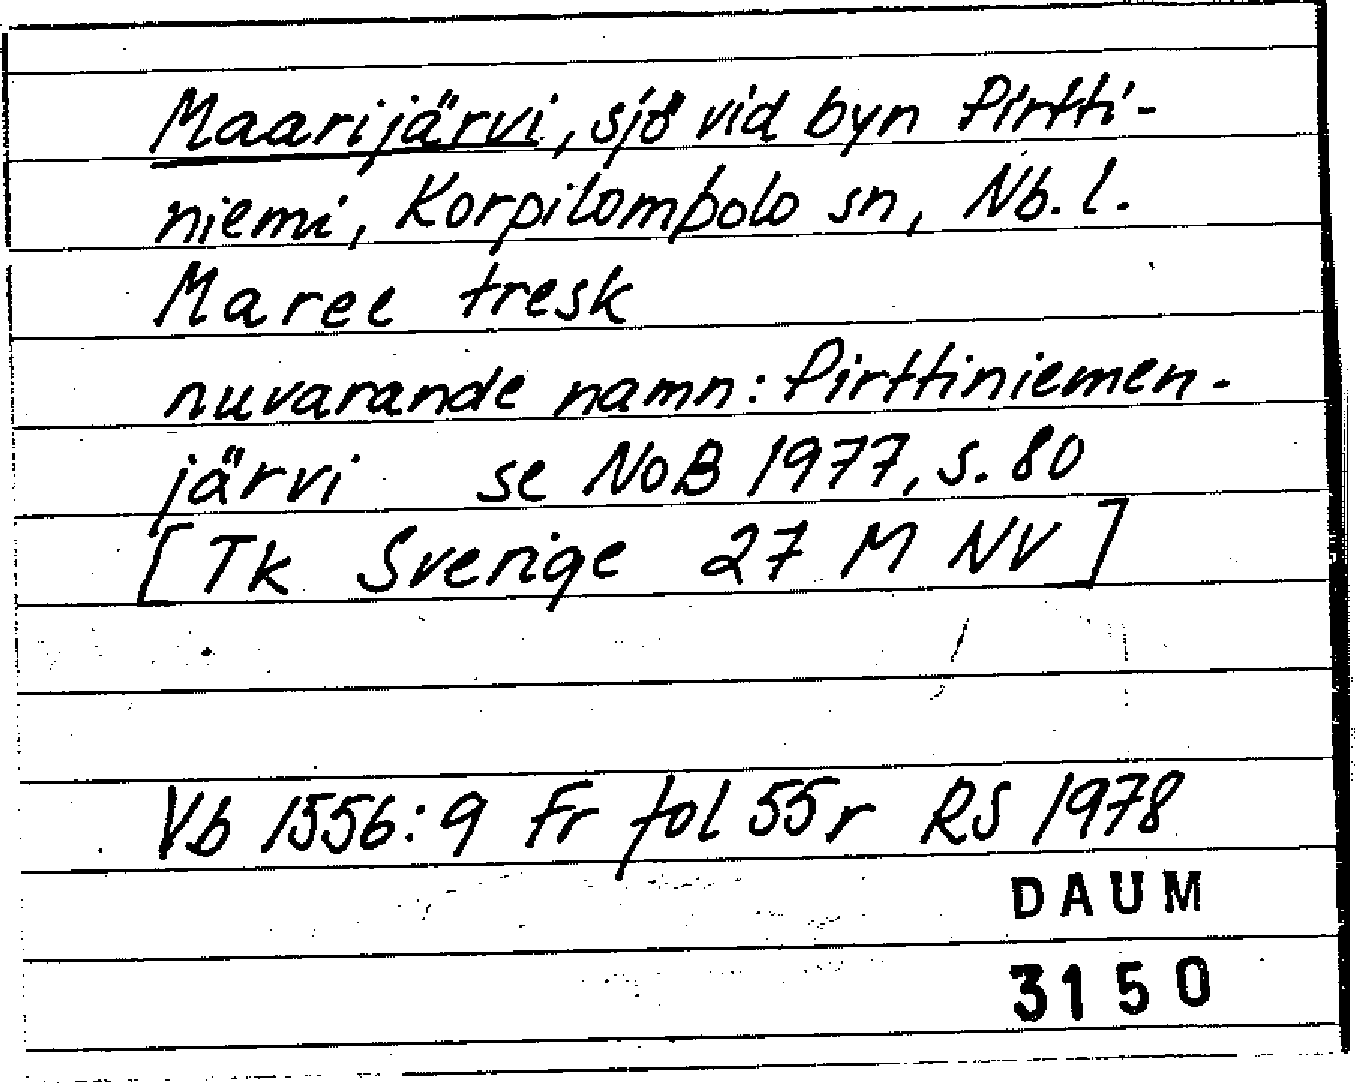 Maarijärvi, sjö vid byn Pirtti-
niemi, Korpilombolo sn, Nb.l.
Maree tresk
nuvarande namn: Pirttiniemen-
järvi se NoB 1977, s. 80
[Tk Sverige 27 M NV]
Vb 1556:9 Fr fol 55r RS 1978
DAUM
3150